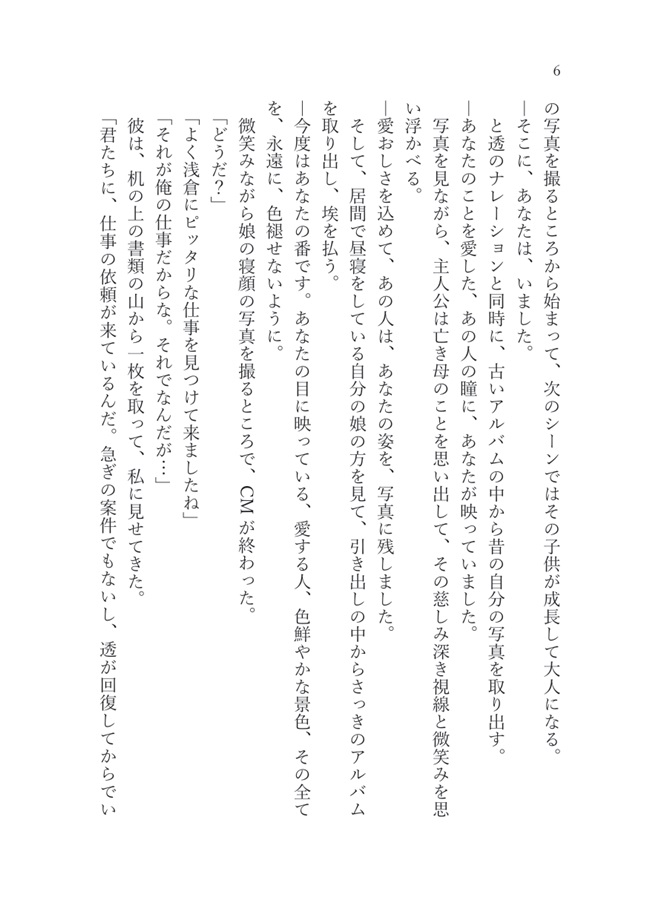 6
の写真を撮るところから始まって、次のシーンではその子供が成長して大人になる。
―そこに、あなたは、いました。
と透のナレーションと同時に、古いアルバムの中から昔の自分の写真を取り出す。
―あなたのことを愛した、あの人の瞳に、あなたが映っていました。
写真を見ながら、主人公は亡き母のことを思い出して、その慈しみ深き視線と微笑みを思
い浮かべる。
―愛おしさを込めて、あの人は、あなたの姿を、写真に残しました。
そして、居間で昼寝をしている自分の娘の方を見て、引き出しの中からさっきのアルバム
を取り出し、埃を払う。
―今度はあなたの番です。あなたの目に映っている、愛する人、色鮮やかな景色、その全て
を、永遠に、色褪せないように。
微笑みながら娘の寝顔の写真を撮るところで、CMが終わった。
「どうだ？」
「よく浅倉にピッタリな仕事を見つけて来ましたね」
「それが俺の仕事だからな。それでなんだが…」
彼は、机の上の書類の山から一枚を取って、私に見せてきた。
「君たちに、仕事の依頼が来ているんだ。急ぎの案件でもないし、透が回復してからでい